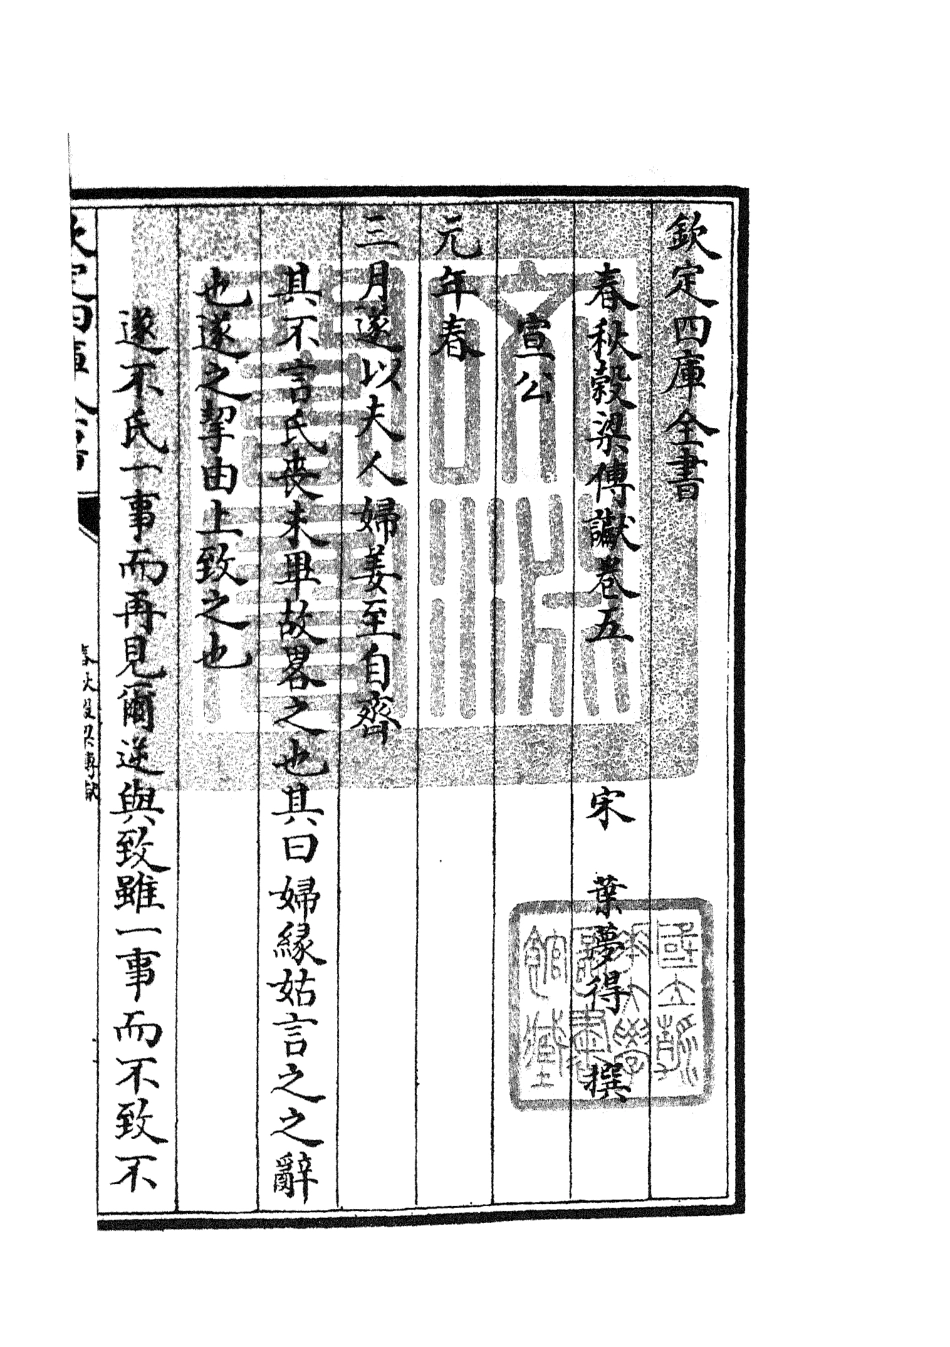 欽定四庫全書
春秋穀梁傳讞卷五
宋 葉夢得 撰
宣公
元年春
三月遂以夫人婦姜至自齊
其不言氏喪未畢故畧之也其曰婦緣姑言之之辭
也遂之挈由上致之也
遂不氏一事而再見爾逆與致雖一事而不致不
欽定四庫全書
春秋穀梁傳讞